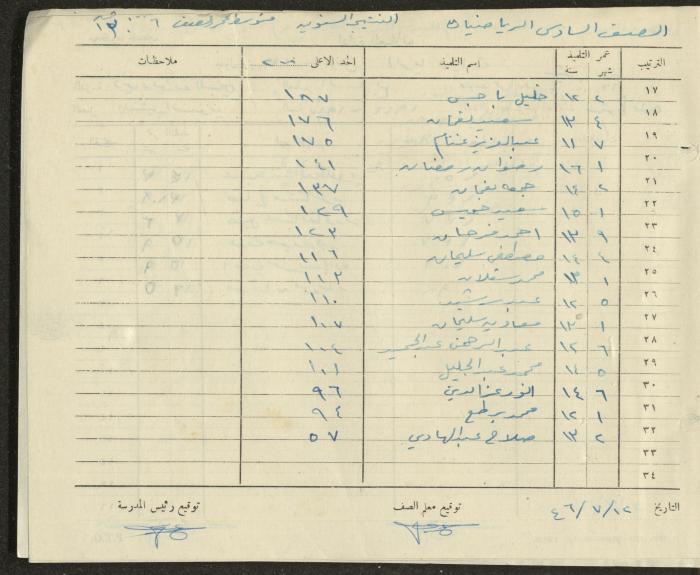 الصف السادس الرياضيات النتيجة السنوية متوسط عمر الصف ٦ ١٣
الترتيب عمر التلميذ شهر سنة اسم التلميذ الحد الاعلى ملاحظات
١٧ ٢ ١٢ خليل ١٨٧
١٨ ٤ ١٣ سعيد نعمان ١٧٦
١٩ ٧ ١١ عبدالعزيز غنام ١٧٥
٢٠ ١ ١٦ رضوان رمضان ١٤١
٢١ ٢ ١٤ جمعه نعمان ١٣٧
٢٢ ١ ١٥ سعيد خميس ١٢٩
٢٣ ٩ ١٣ احمد فرحان ١٢٣
٢٤ ٤ ١٤ مصطفى سليمان ١١٦
٢٥ ١ ١٣ محمد ١١٣
٢٦ ٥ ١٢ عبد رشيد ١١٠
٢٧ ١ ١٣ سليمان ١٠٧
٢٨ ٦ ١٢ عبد الرحمن عبد الحميد ١٠٤
٢٩ ٥ ١٤ محمد عبد الجليل ١٠١
٣٠ ٦ ١٤ انور عزالدين ٩٦
٣١ ١ ١٢ محمد ٩٤
٣٢ ٢ ١٣ صلاح عبدالهادي ٥٧
٣٣
٣٤
التاريخ ٤٦/٧/١٢ توقيع معلم الصف توقيع رئيس المدرسة